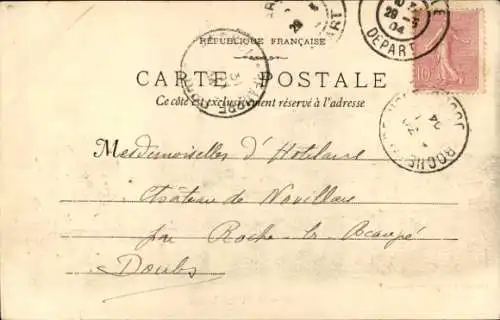 28 -5
04
DEPART
RÉPUBLIQUE FRANÇAISE
10
CARTE POSTALE
Ce côté est exclusivement réservé à l'adresse
Mesdemoiselles d'Hotelans
Château de Novillars
par Roche-lez-Beaupré
Doubs